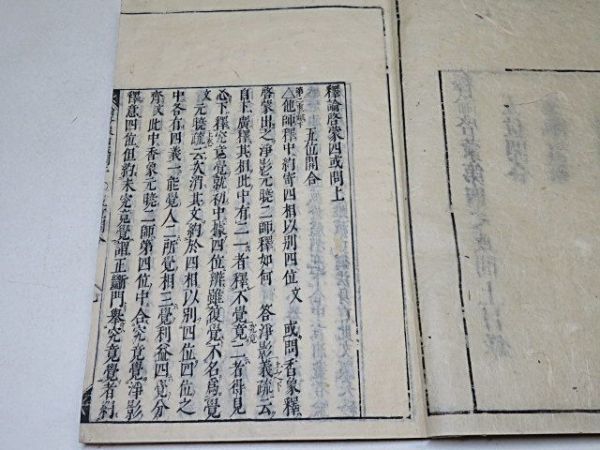 釋論啓蒙四或問上
五位開合
△他師釋中約寄四相以別四位文 或問香象釋
啓蒙出之淨影元曉二師釋如何 答淨影義疏云
自下廣釋其相此中有二一者釋不覺竟二者得見
心下釋究竟覺就初中據四位辨雖復覺不名爲覺
文元曉疏云次消其文約於四相以別四位四位之
中各有四義一能覺人二所覺相三覺利益四覺分
齊文此中香象元曉二師第四位中合究竟覺淨影
釋意四位但約未究竟覺誰正斷門擧究竟覺者約